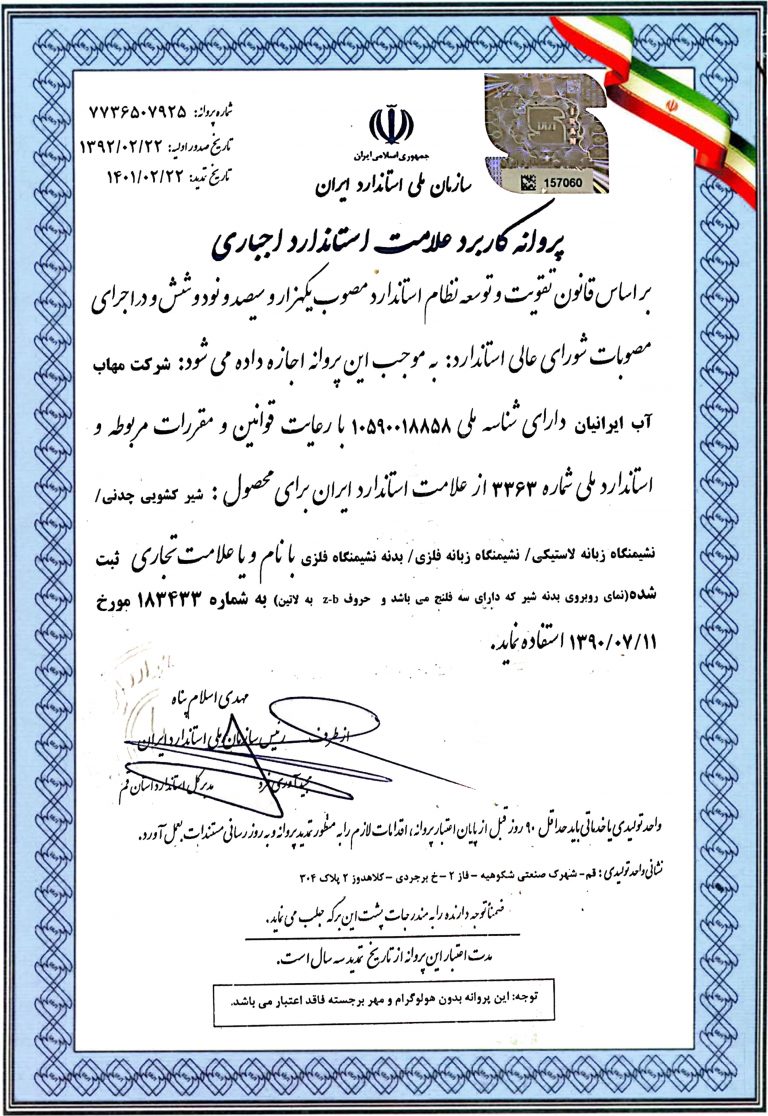 شماره پروانه: ۷۷۳۶۵۰۷۹۲۵
تاریخ صدور اولیه: ۱۳۹۲/۰۲/۲۲
تاریخ تمدید: ۱۴۰۱/۰۲/۲۲
جمهوری اسلامی ایران
سازمان ملی استاندارد ایران
157060
پروانه کاربرد علامت استاندارد اجباری
بر اساس قانون تقویت و توسعه نظام استاندارد مصوب یکهزار و سیصد و نود و شش و در اجرای
مصوبات شورای عالی استاندارد: به موجب این پروانه اجازه داده می شود: شرکت مهاب
آب ایرانیان دارای شناسه ملی ۱۰۵۹۰۰۱۸۸۵۸ با رعایت قوانین و مقررات مربوطه و
استاندارد ملی شماره ۳۳۶۳ از علامت استاندارد ایران برای محصول : شیر کشویی چدنی/
نشیمنگاه زبانه لاستیکی/ نشیمنگاه زبانه فلزی/ بدنه نشیمنگاه فلزی با نام و یا علامت تجاری ثبت
شده(نمای روبروی بدنه شیر که دارای سه فلنج می باشد و حروف z-b به لاتین) به شماره ۱۸۳۴۳۳ مورخ
۱۳۹۰/۰۷/۱۱ استفاده نماید.
مهدی اسلام پناه
از طرف رئیس سازمان ملی استاندارد ایران
مدیر کل استاندارد استان قم
واحد تولیدی یا خدماتی باید حداقل ۹۰ روز قبل از پایان اعتبار پروانه، اقدامات لازم را به منظور تمدید پروانه و به روز رسانی مستندات بعمل آورد.
نشانی واحد تولیدی: قم- شهرک صنعتی شکوهیه - فاز ۲ - خ بروجردی - کلاهدوز ۲ پلاک ۳۰۴
ضمناً توجه دارنده را به مندرجات پشت این برگه جلب می نماید.
مدت اعتبار این پروانه از تاریخ تمدید سه سال است.
توجه: این پروانه بدون هولوگرام و مهر برجسته فاقد اعتبار می باشد.